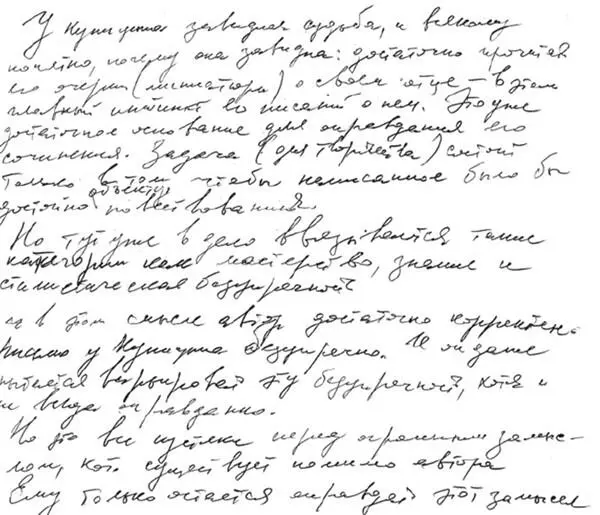 У Куницына завидная судьба, и всякому
понятно, почему она завидна: достаточно прочитать
его очерки (миниатюры) о своем отце – в этом
главный инстинкт его писаний о нем. Это уже
достаточное основание для оправдания его
сочинения. Задача (для творчества) состоит
только в том чтобы написанное было бы
достойно объекту повествования.
Но тут уже в дело ввязываются такие
категории как мастерство, знание и
стилистическая безупречность
и в этом смысле автор достаточно корректен.
Письмо у Куницына безупречно. И он даже
пытается варьировать эту безупречность, хотя и
не всегда оправданно.
Но это все пустяки перед огромным замыс-
лом, кот. существует помимо автора
Ему только остается оправдать этот замысел